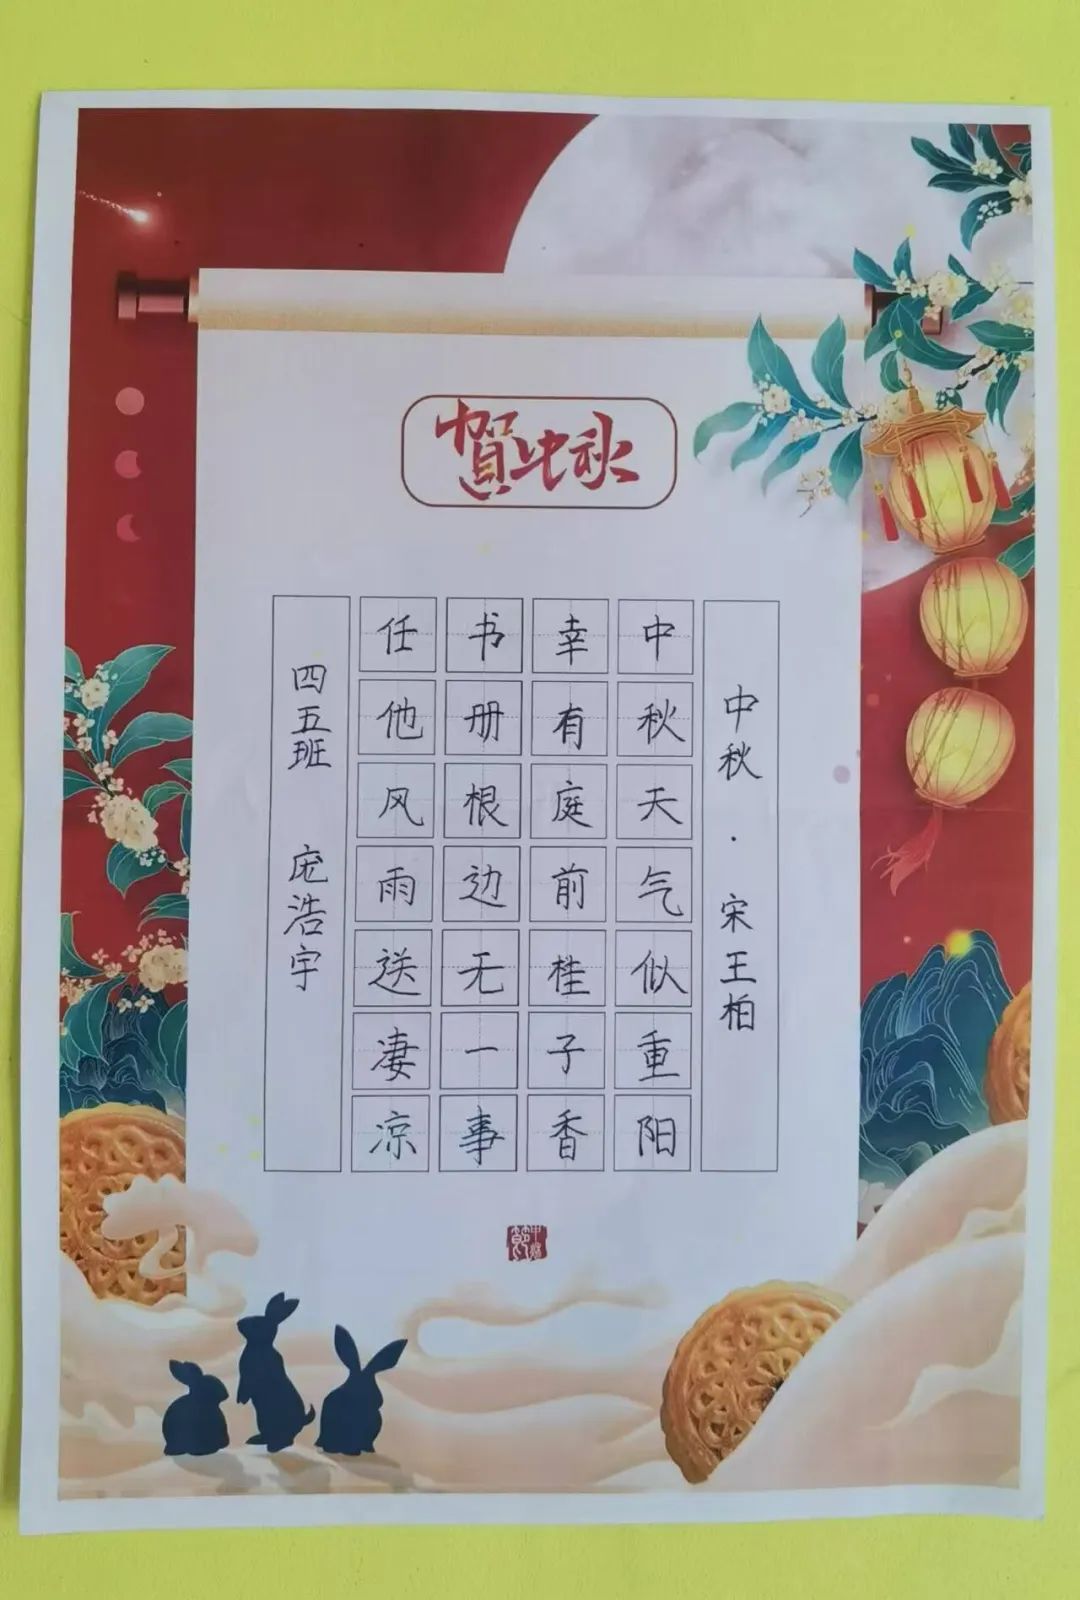 賀中秋
中秋·宋王柏
中秋天气似重阳
幸有庭前桂子香
书册根边无一事
任他风雨送凄凉
四五班 庞浩宇